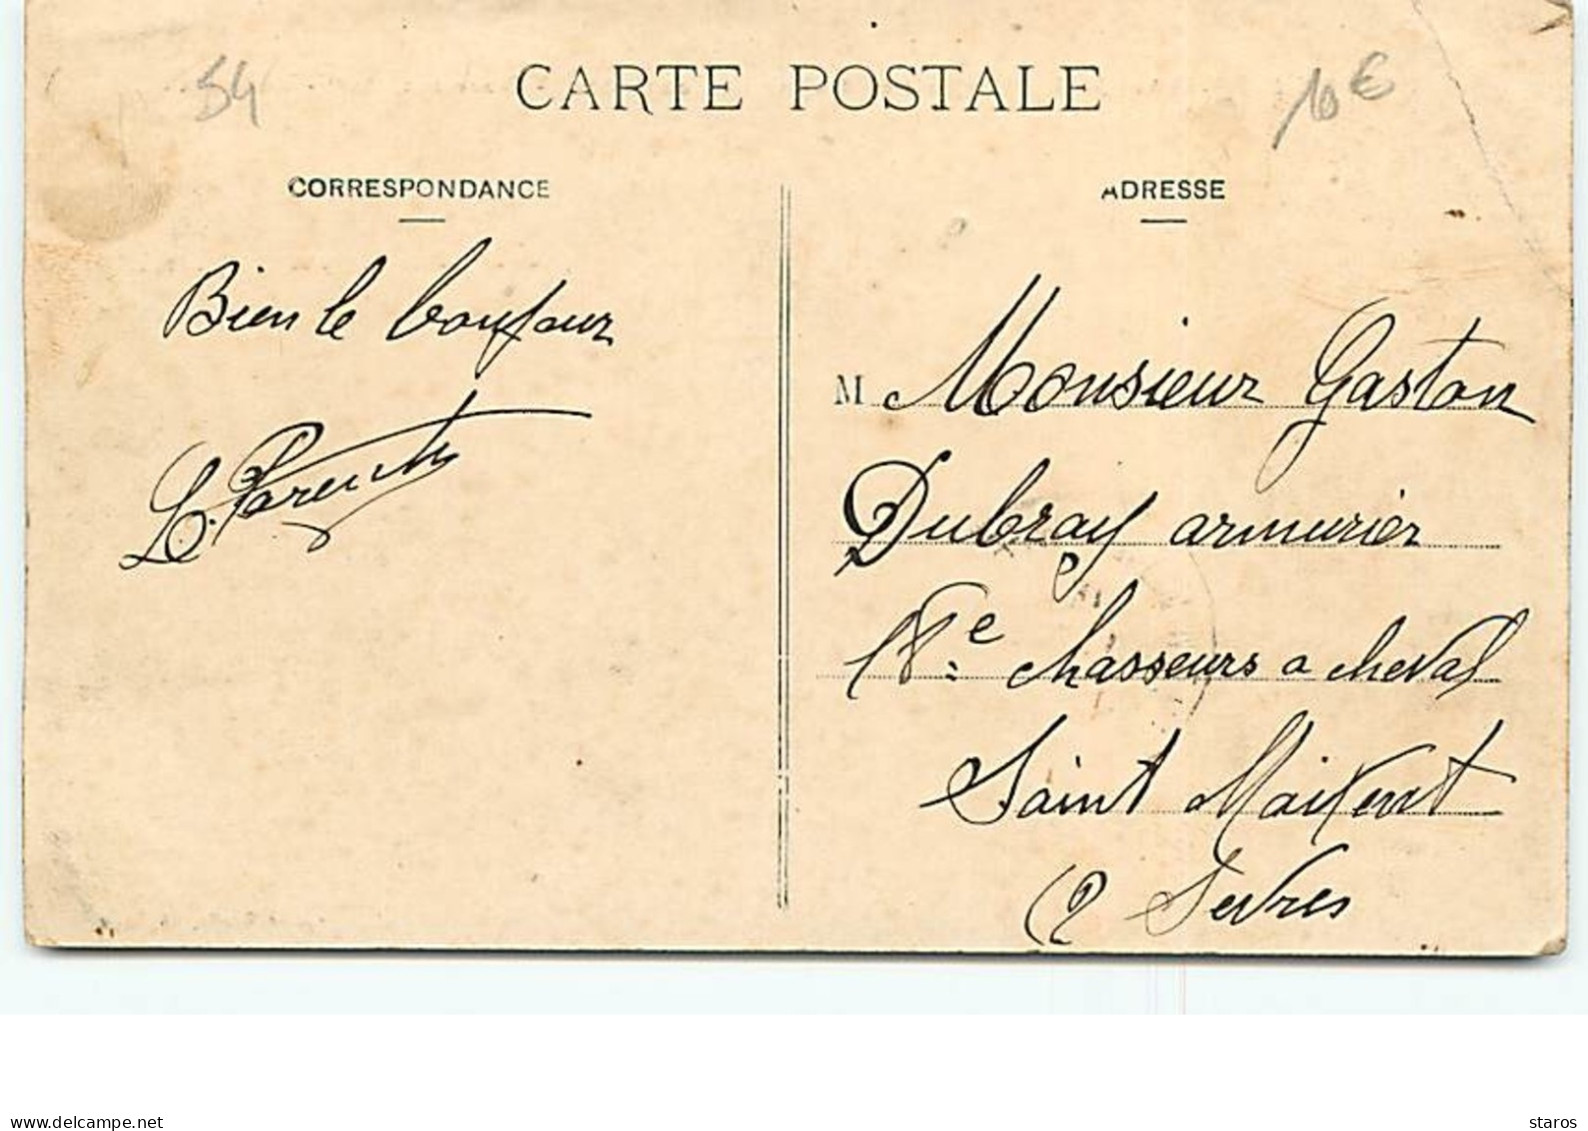 54
CARTE POSTALE
10 €
CORRESPONDANCE
Bien le bonjour
L. Parent
ADRESSE
M Monsieur Gaston
Dubray armurier
18e chasseurs a cheval
Saint Maixent
(2 Sevres
www.delcampe.net
staros